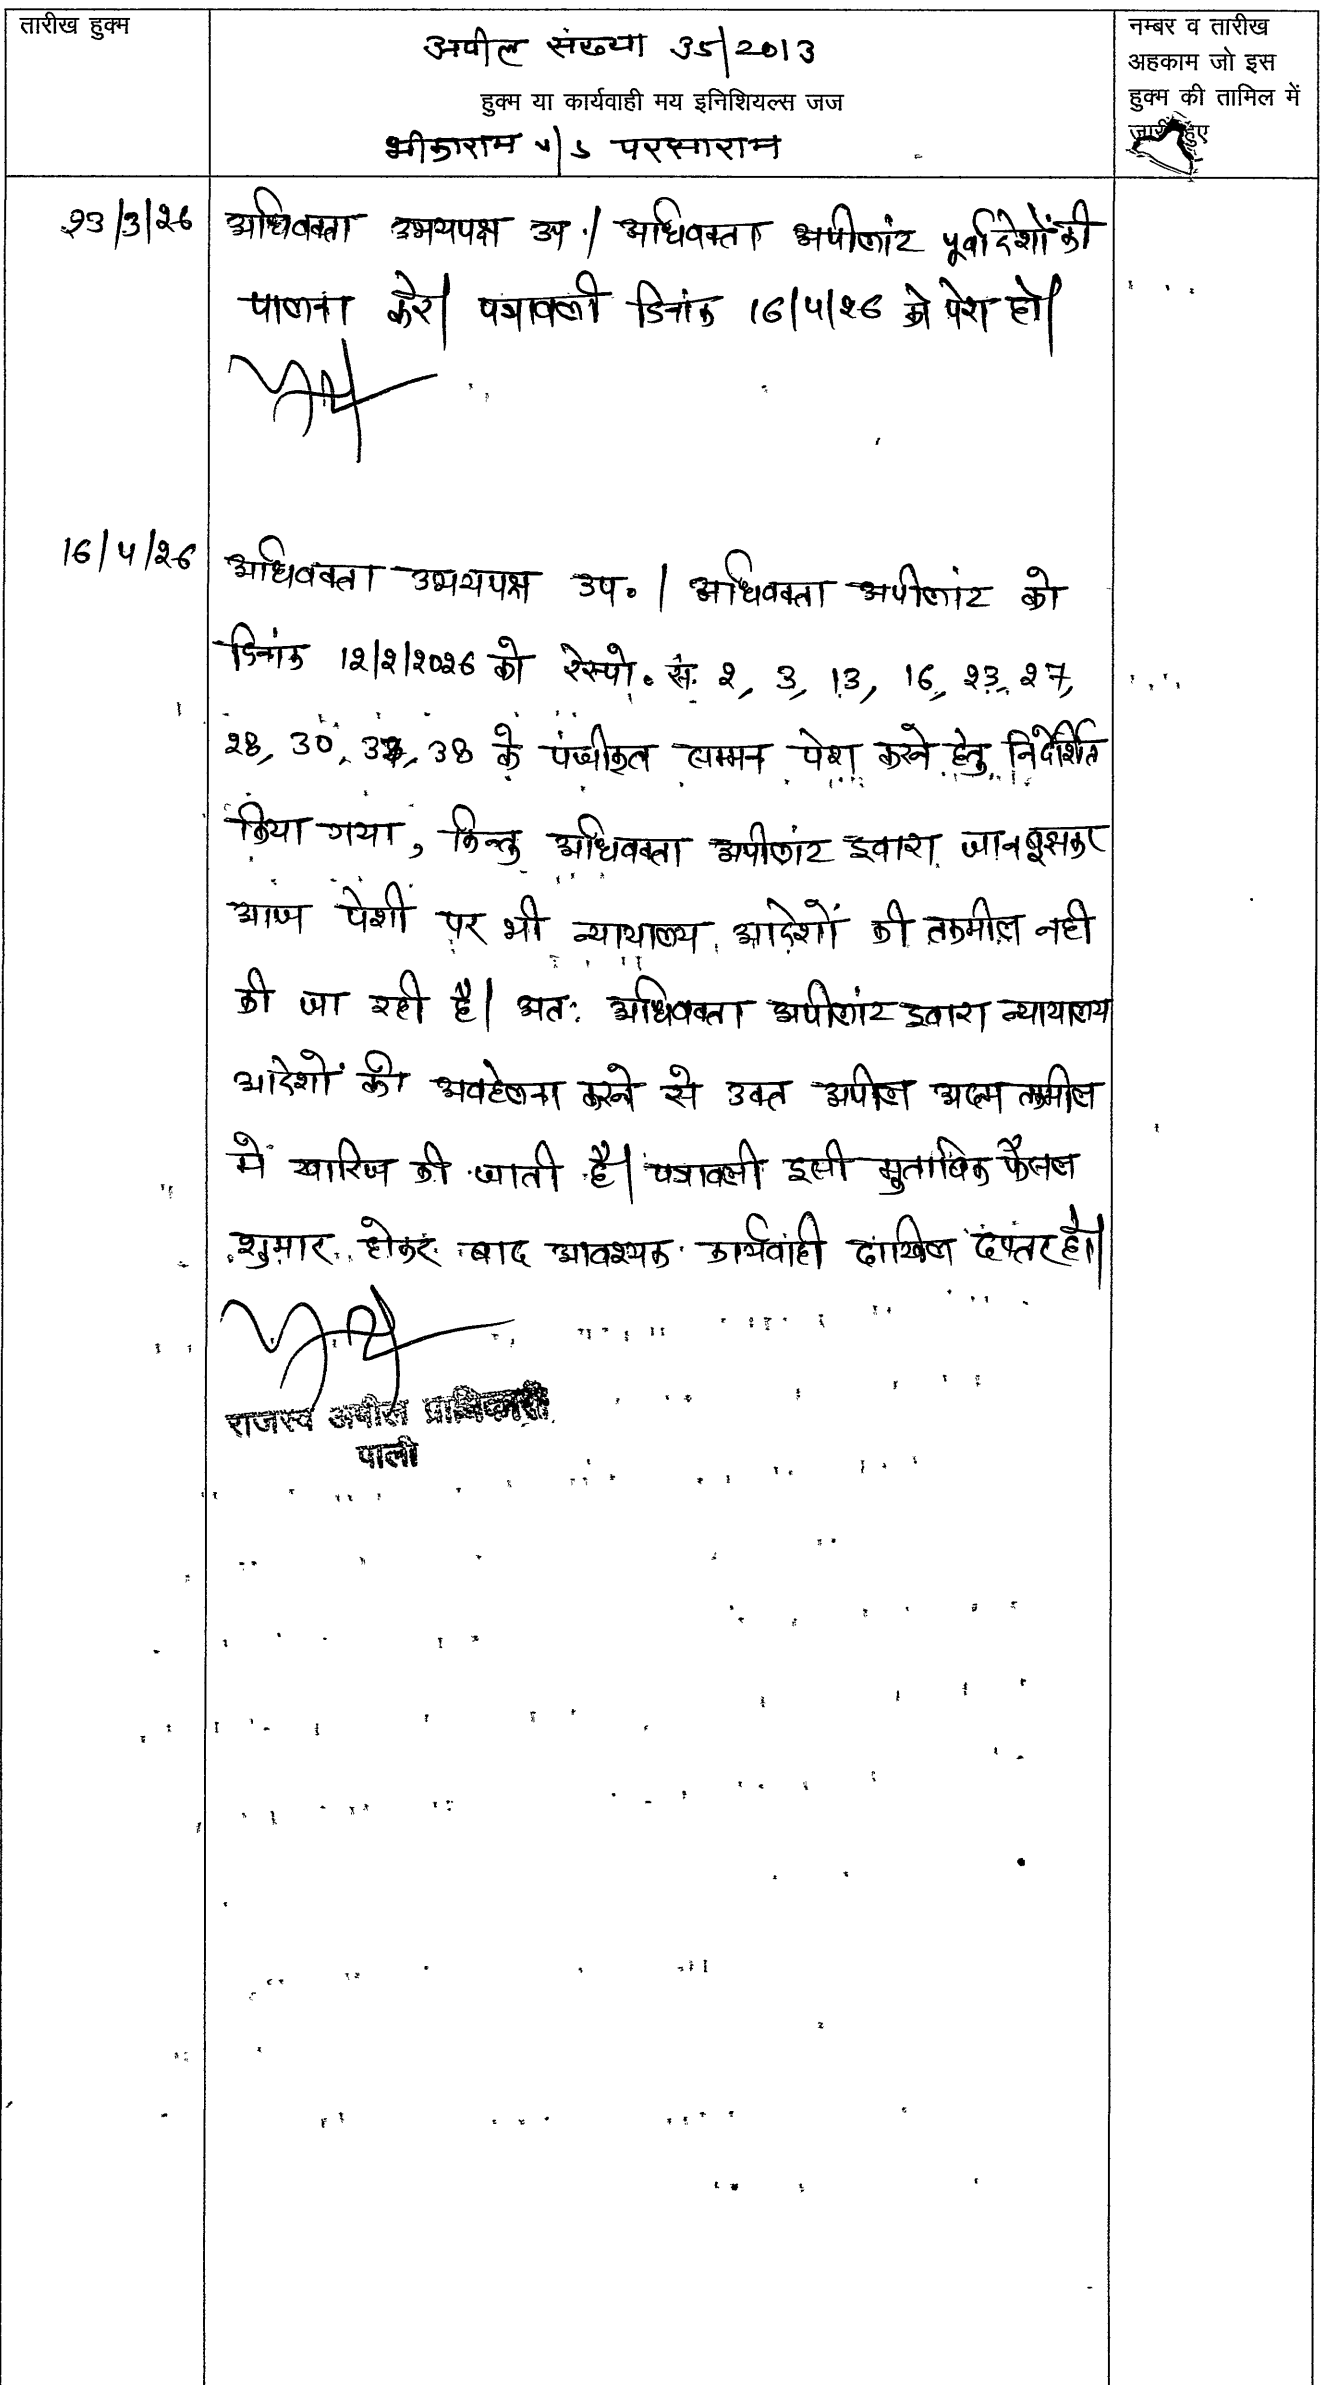 तारीख हुक्म
अपील संख्या 35/2013
हुक्म या कार्यवाही मय इनिशियल्स जज
भीकाराम v/s परसाराम
नम्बर व तारीख
अहकाम जो इस
हुक्म की तामिल में
जारी हुए
23/3/26 अधिवक्ता उभयपक्ष उप.। अधिवक्ता अपीलांट पूर्वादेशों की
पालना करे। पत्रावली दिनांक 16/4/26 को पेश हो।
16/4/26 अधिवक्ता उभयपक्ष उप.। अधिवक्ता अपीलांट को
दिनांक 12/2/2026 को रेस्पो. सं. 2, 3, 13, 16, 23, 27,
28, 30, 38 के पंजीकृत सम्मन पेश करने हेतु निर्देशित
किया गया, किन्तु अधिवक्ता अपीलांट द्वारा जानबूझकर
आज पेशी पर भी न्यायालय आदेशों की तकमील नही
की जा रही है। अतः अधिवक्ता अपीलांट द्वारा न्यायालय
आदेशों की अवहेलना करने से उक्त अपील अदम तकमील
में खारिज की जाती है। पत्रावली इसी मुताबिक फैसल
शुमार होकर बाद आवश्यक कार्यवाही दाखिल दफ्तर हो।
राजस्व अपील प्राधिकारी
पाली